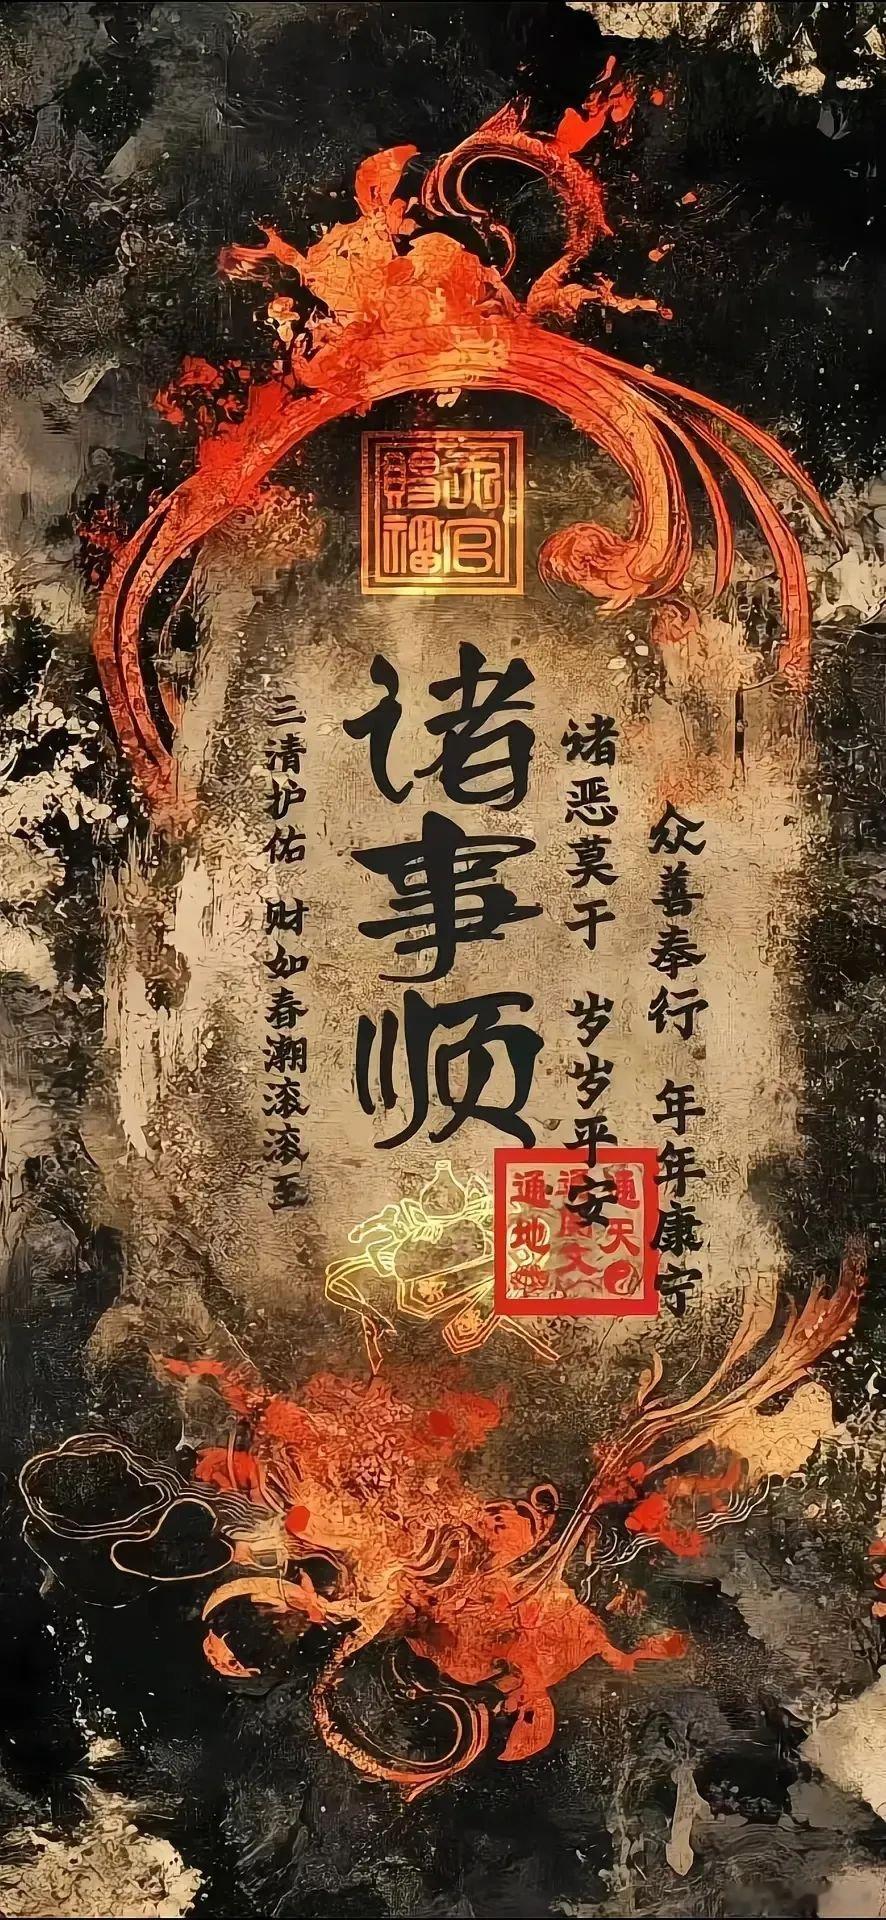 天官
賜福
众善奉行 年年康宁
诸恶莫于 岁岁平安
诸事顺
三清护佑 财如春潮滚滚王
通天
通地